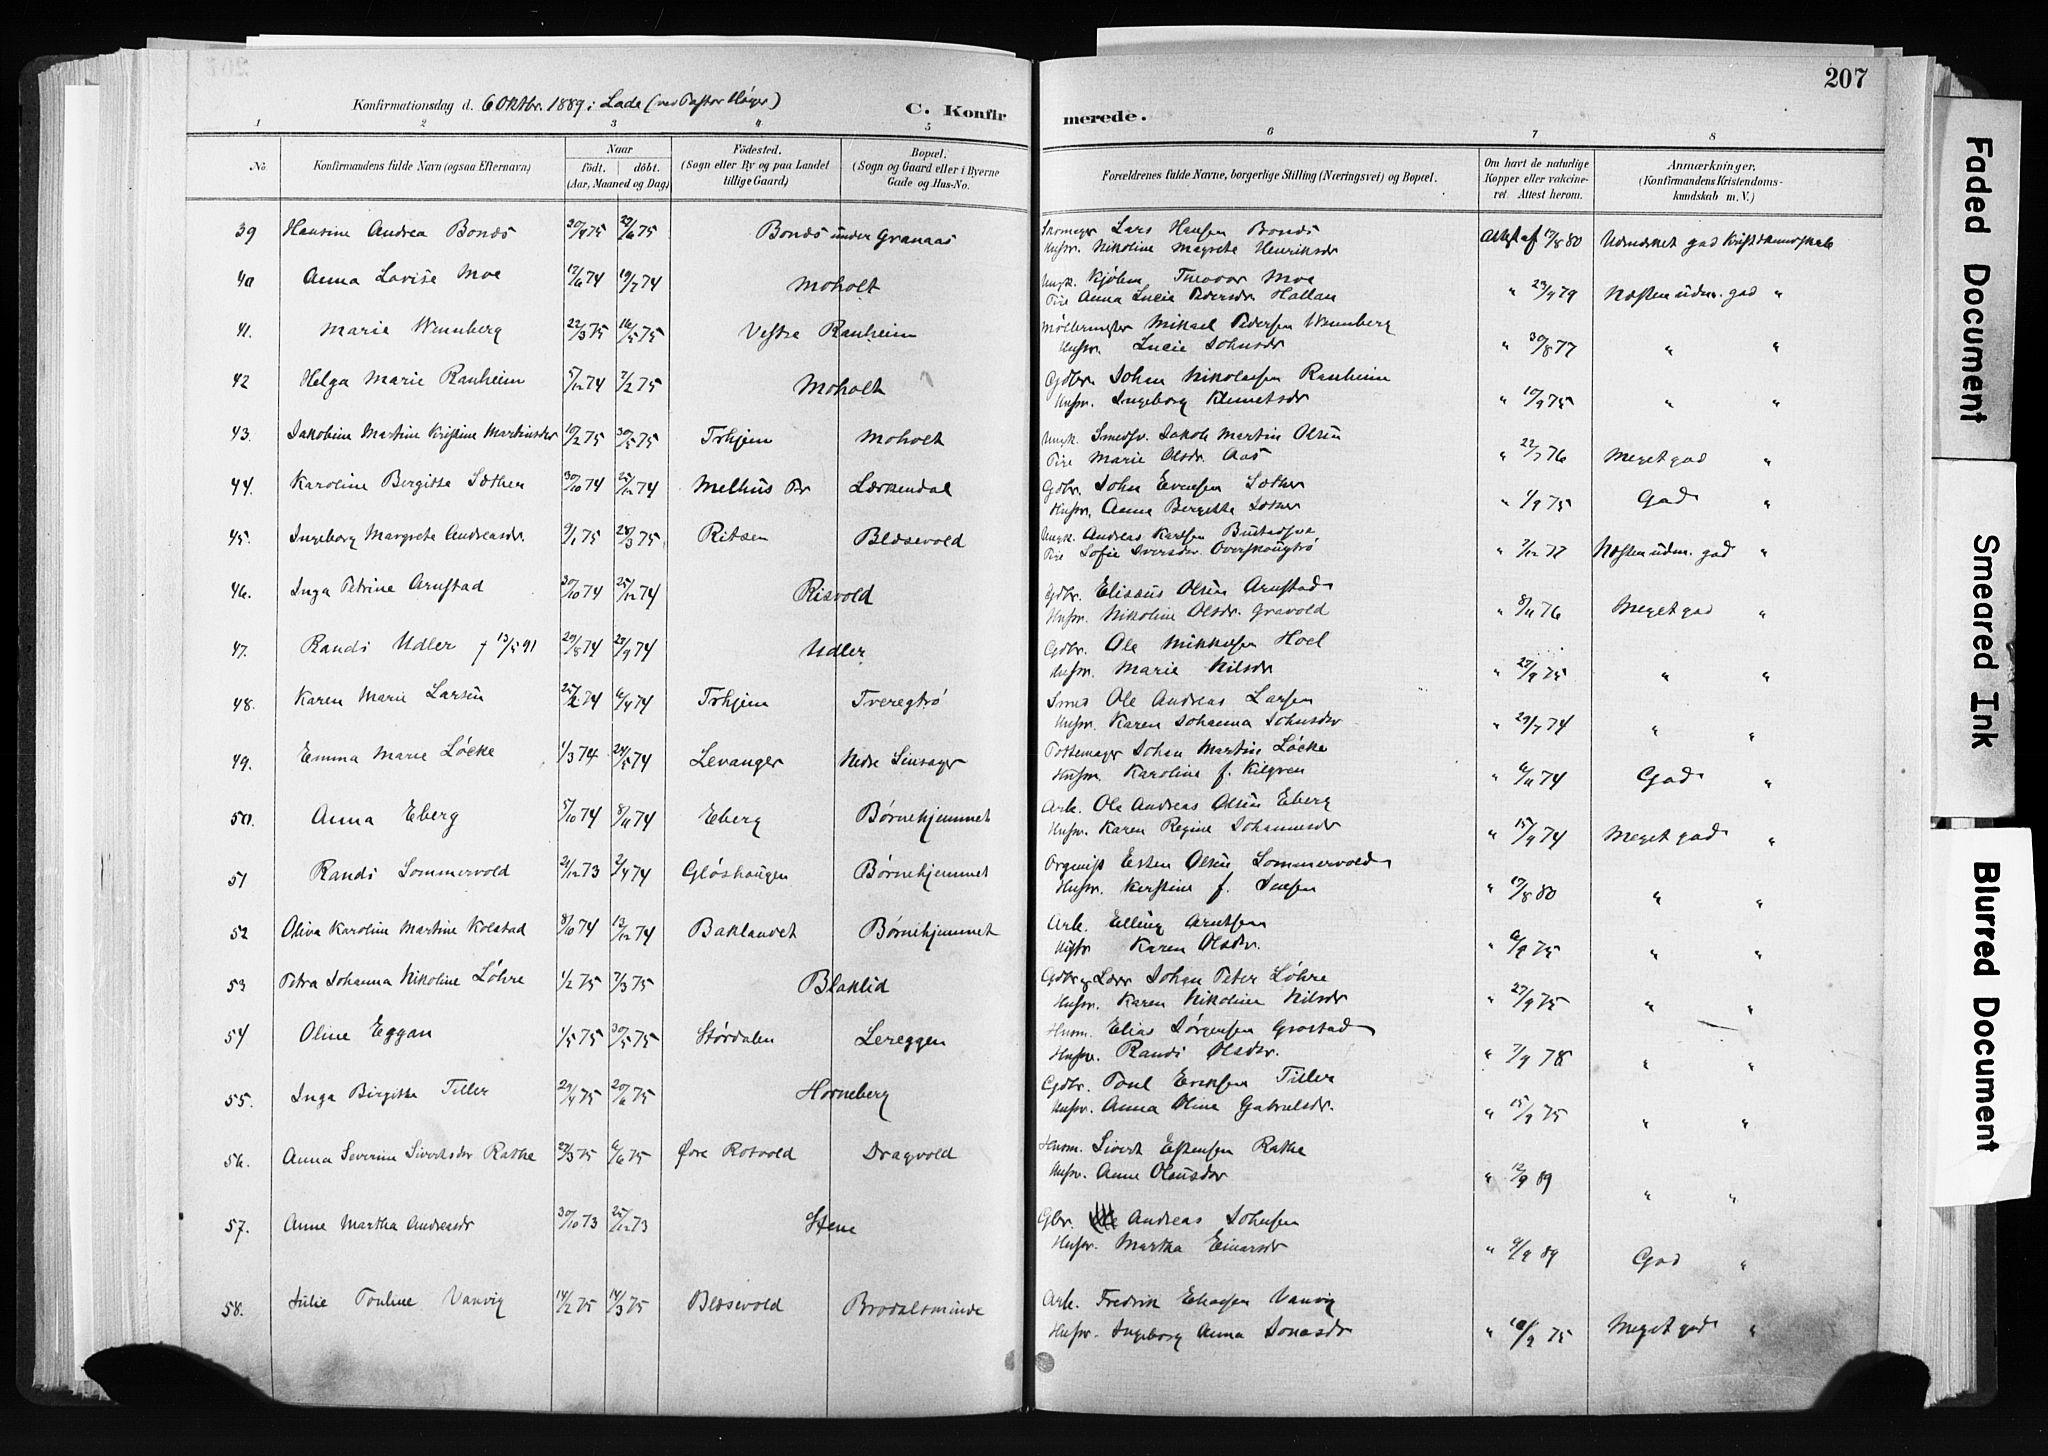 207
Konfirmationsdag d. 6 Oktbr. 1889 i Lade (ved Pastor Høyer)
C. Konfirmerede.
1 2 3 4 5 6 7 8
No
Konfirmandens fulde Navn (ogsaa Efternavn)
Naar født. døbt. (Aar, Maaned og Dag)
Födested. (Sogn eller By og paa Landet tillige Gaard)
Bopæl. (Sogn og Gaard eller i Byerne Gade og Hus-No.
Forældrenes fulde Navne, borgerlige Stilling (Næringsvei) og Bopæl.
Om havt de naturlige Kopper eller vaccineret. Attest herom.
Anmærkninger, (Konfirmandens Kristendomskundskab m. V.)
39 Hansine Andrea Bonds 20/4 75 29/6 75 Bonds under Granaas Skomager Lars Hansen Bonds Attest af 17/8 80 Udmerket god Kristdkundskab
Hustr. Nikoline Magrete Henriksdr
40 Anna Lovise Moe 17/6 74 19/7 74 Moholt Ungk. Theodor Moe " 29/9 79 Næsten udm. god "
Pige Anna Lucie Pedersdr Hallan
41. Marie Wennberg 22/3 75 16/5 75 Vestre Ranheim Møllermester Mikael Pedersen Wennberg " 30/8 77 " "
Hustr. Lucie Johnsdr
42 Helga Marie Ranheim 5/12 74 7/2 75 Moholt Gdbr. Johan Nikolaisen Ranheim " 17/9 75 " "
Hustr. Ingeborg Klemetsdr
43. Jakobine Martine Kristine Martinsdr 10/2 75 30/5 75 Trhjem Moholt Ungk. Smedsv. Jakob Martin Olsen " 22/7 76 Meget god "
Pige Marie Olsdr. Aas
44. Karoline Bergitte Sæther 30/10 74 25/12 74 Melhus Pr Lerkendal Gdbr. John Evensen Sæther " 1/9 75 God "
Hustr. Anna Bergitte Sæther
45. Ingeborg Margrete Andreasdr. 9/1 75 28/3 75 Ritsen Blæsevold Ungk. Andreas Karlsen " 7/12 77 Næsten udm. god "
Pige Sofie Iversdr. Overskougtrø
46. Inga Petrine Arnstad 30/10 74 25/12 74 Risvold Gdbr. Eliseus Olsen Arnstad " 8/11 76 Meget god "
Hustr. Nikoline Olsdr. Gravold
47. Randi Udler † 13/5 91 29/8 74 29/9 74 Udler Gdbr. Ole Mikkelsen Hoel " 23/9 75 " "
Hustr. Marie Nilsdr
48. Karen Marie Larsen 25/2 74 6/4 74 Trhjem Tveregtrø Smed Ole Andreas Larsen " 29/7 74 " "
Hustr. Karen Johanna Johnsdr
49. Emma Marie Løcke 1/3 74 24/5 74 Levanger Nedre Sinsager Pottemager Johan Martin Løcke " 6/11 74 God "
Hustr. Karoline f. Kilgren
50. Anna Eberg 5/10 74 8/11 74 Eberg Børnehjemmet Arb. Ole Andreas Olsen Eberg " 15/9 74 Meget god "
Hustr. Karen Regine Johannesdr
51 Randi Sommervold 21/12 73 2/4 74 Gløshaugen Børnehjemmet Organist Esten Olsen Sommervold " 17/8 80 " "
Hustr. Kirstine f. Jensen
52 Oliva Karoline Martine Kolstad 8/10 74 13/12 74 Baklandet Børnehjemmet Arb. Elling Arntsen " 6/8 75 " "
Hustr Karen Olsdr.
53 Petra Johanna Nikoline Løhre 1/2 75 7/3 75 Blaklid Gdbr og Lærer Johan Peter Løhre " 27/9 75 " "
Hustr. Karen Nikoline Nilsdr
54 Oline Eggan 1/5 75 30/5 75 Størdalen Lereggen Husm. Elias Jørgensen Grostad " 7/9 78 " "
Hustr. Randi Olsdr.
55. Inga Birgitte Tiller 29/4 75 20/6 75 Horneberg Gdbr. Poul Eriksen Tiller " 15/9 75 " "
Hustr. Anna Olina Gabrielsdr.
56. Anna Severine Sivertsdr Rathe 23/3 75 6/6 75 Øvre Rotvold Dragvold Husm. Sivert Estensen Rathe " 12/9 89 " "
Hustr. Anne Olausdr
57. Anne Martha Andreasdr 30/10 73 25/12 73 Stene Gbr. Andreas Johnsen " 9/9 89 God "
Hustr. Martha Einarsdr
58. Julie Pouline Vanvig 14/2 75 14/3 75 Blæsevold Brodalsminde Arb. Fredrik Vanvig " 10/9 75 Meget god "
Hustr. Ingeborg Anna Jonasdr
Faded Document
Smeared Ink
Blurred Document